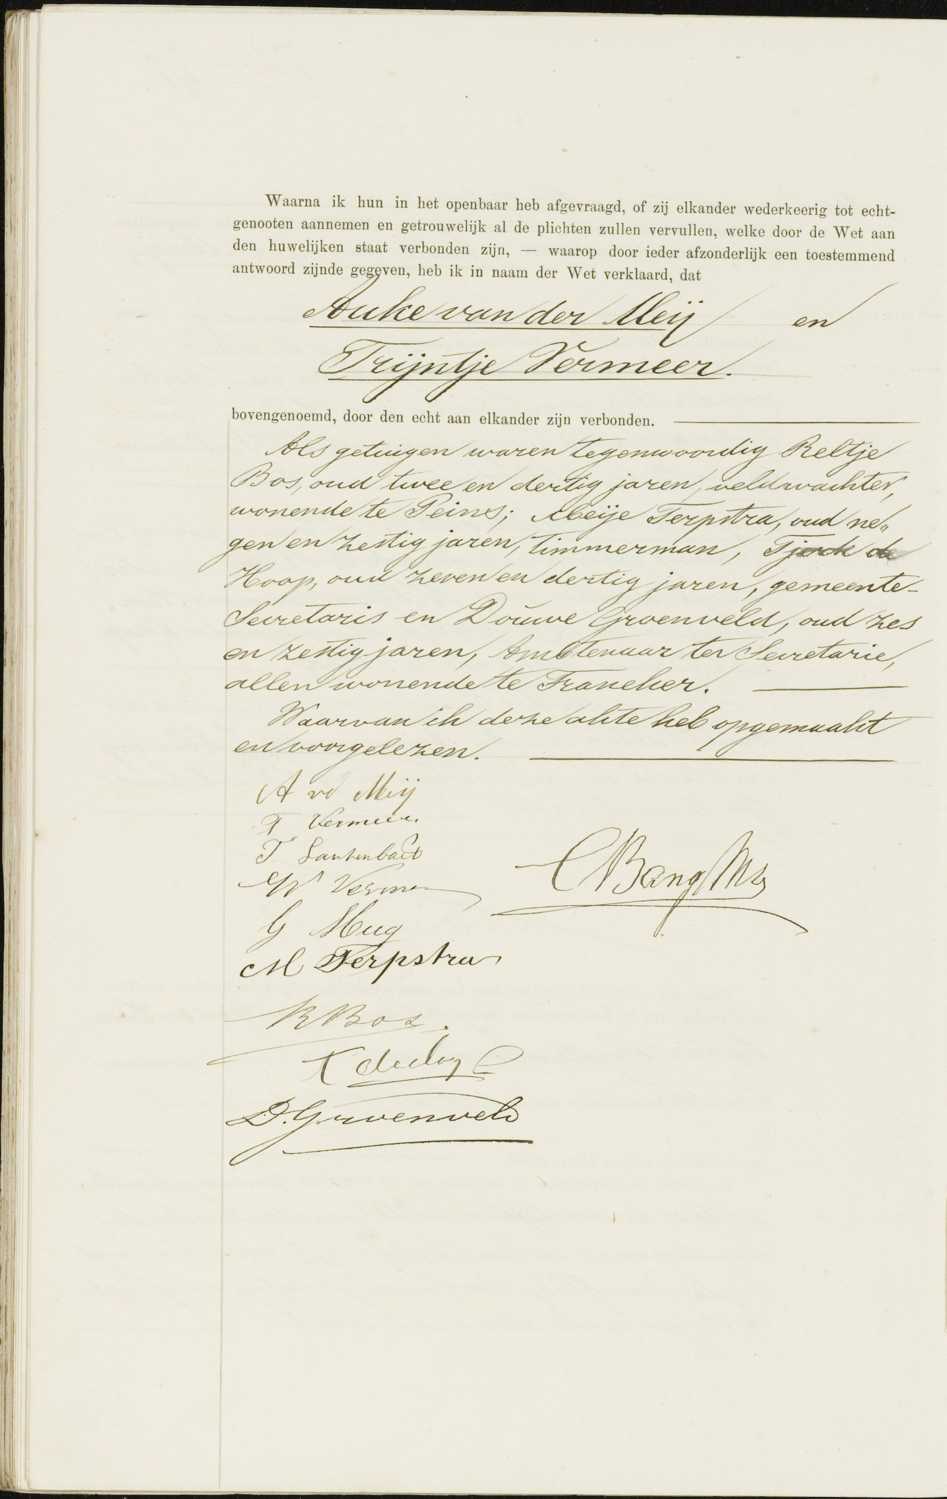 Waarna ik hun in het openbaar heb afgevraagd, of zij elkander wederkeerig tot echt-
genooten aannemen en getrouwelijk al de plichten zullen vervullen, welke door de Wet aan
den huwelijken staat verbonden zijn, — waarop door ieder afzonderlijk een toestemmend
antwoord zijnde gegeven, heb ik in naam der Wet verklaard, dat
Auke van der Meij en
Trijntje Vermeer.
bovengenoemd, door den echt aan elkander zijn verbonden.
Als getuigen waren tegenwoordig Reltje
Bos, oud twee en dertig jaren, veldwachter,
wonende te Peins; Meije Terpstra, oud ne-
gen en zestig jaren, timmerman, Tjerk de
Hoop, oud zeven en dertig jaren, gemeente-
Secretaris en Douwe Groenveld, oud zes
en zestig jaren, Ambtenaar ter Secretarie,
allen wonende te Franeker.
Waarvan ik deze akte heb opgemaakt
en voorgelezen.
A vd Meij
T Vermeer
T Lautenbach
W Vermeer
G Mug
M Terpstra
R Bos.
T de Hoop
D. Groenveld